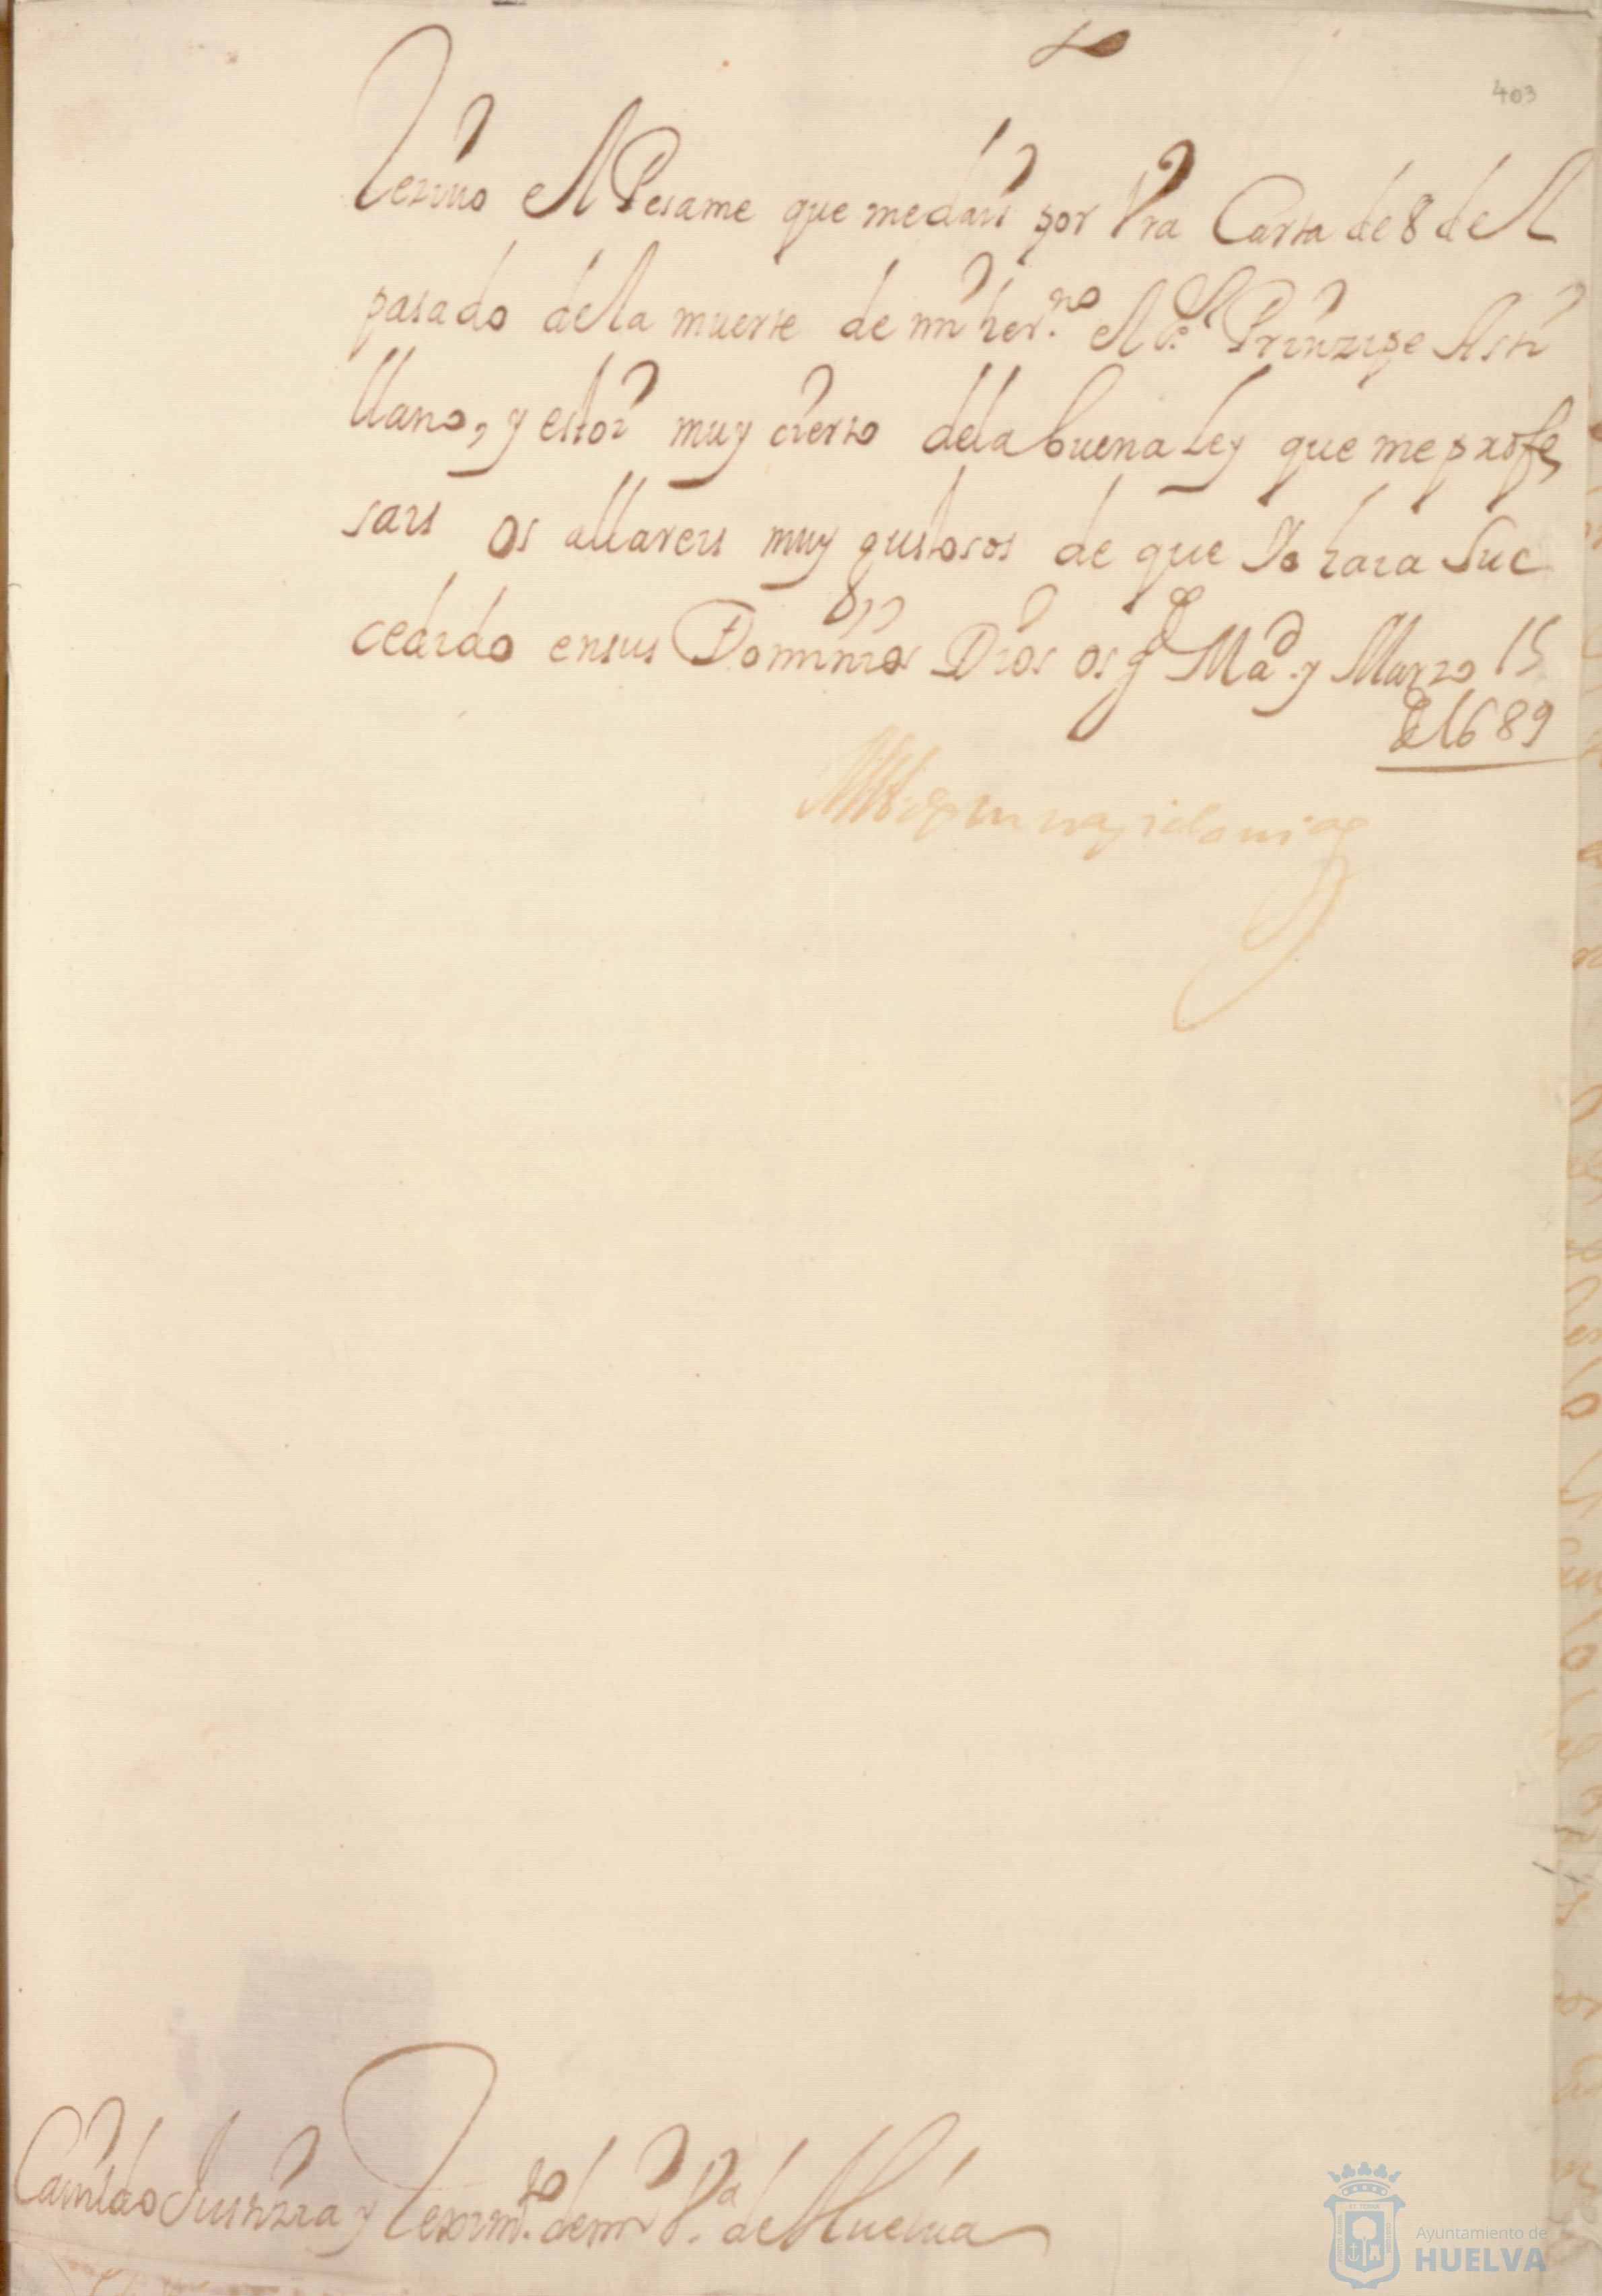 403
Reziuo el Pesame que me dais por Vra Carta de 8 del
pasado de la muerte de mi her.no el S.r Prinzipe Asti
llano, y estoi muy cierto de la buena Ley que me profe
sais os allareis muy gustosos de que Yo haia Suc
cedido en sus Dominios Dios os g.e Mad.d y Marzo 15
de 1689
Cauildo Justizia y Reximi.to de mi V.a de Huelua
Ayuntamiento de
HUELVA